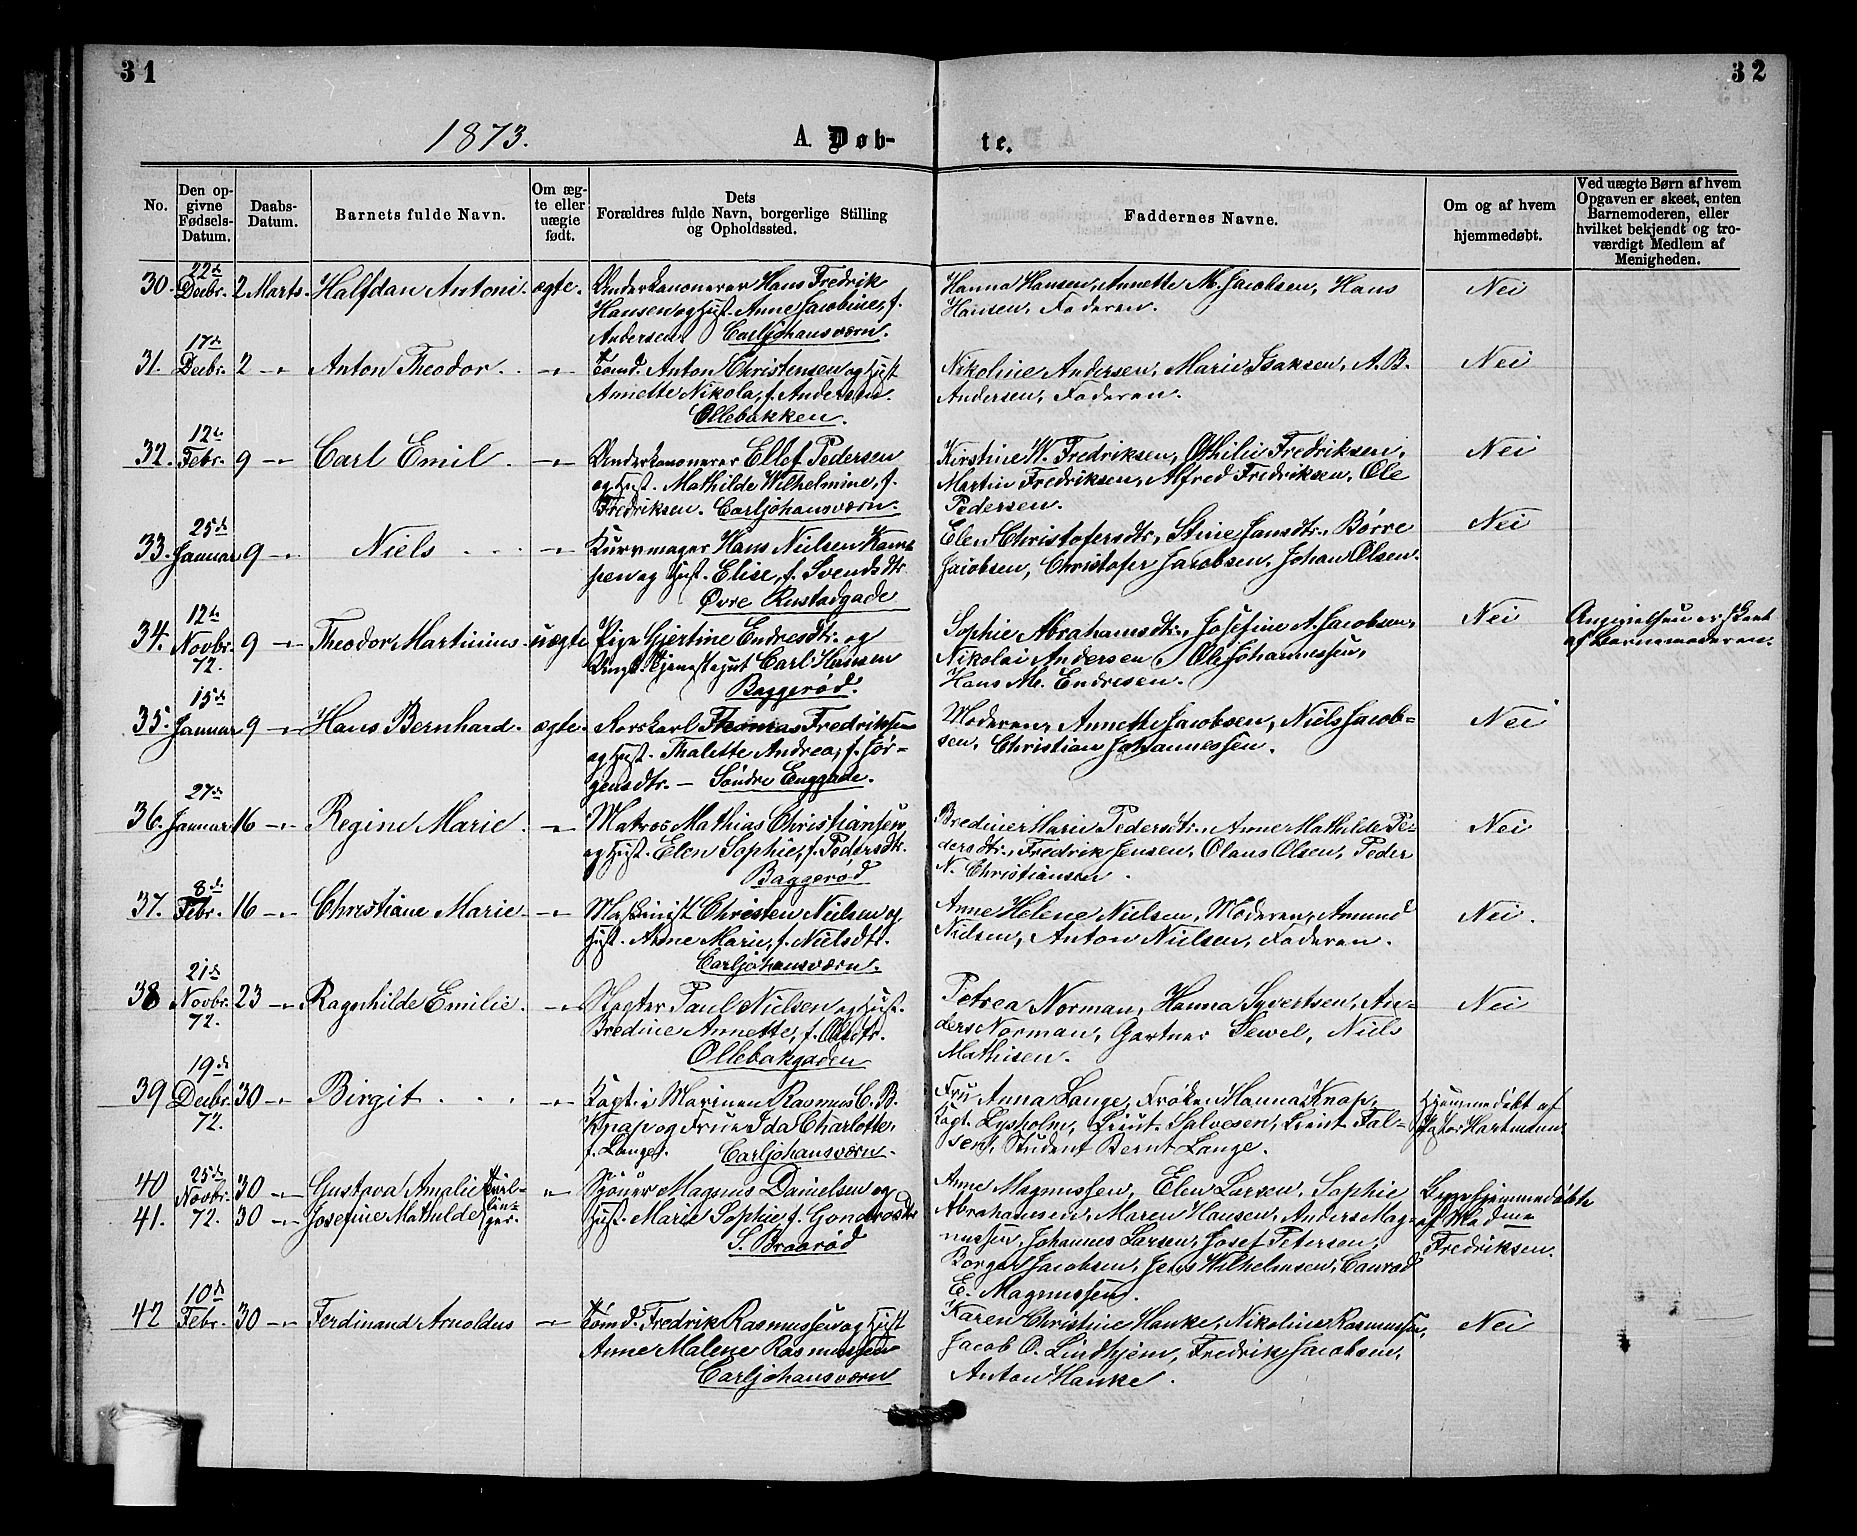 31
32
1873.
A. Døb-
te.
No.
Den op-
givne
Fødsels-
Datum.
Daabs-
Datum.
Barnets fulde Navn.
Om æg-
te eller
uægte
født.
Dets
Forældres fulde Navn, borgerlige Stilling
og Opholdssted.
Faddernes Navne.
Om og af hvem
hjemmedøbt.
Ved uægte Børn af hvem
Opgaven er skeet, enten
Barnemoderen, eller
hvilket bekjendt og tro-
værdigt Medlem af
Menigheden.
30. 22de Decbr. 2 Marts. Halfdan Antoni. ægte.
Underkanonerer Hans Fredrik
Hansen og Hust. Anne Jacobine, f.
Andersen. Carljohansværn.
Hanna Hansen, Annette M. Jacobsen, Hans
Hansen, Faderen.
Nei
31. 17de Decbr. 2 -"- Anton Theodor. -"-
Tømd. Anton Christensen og Hust
Annette Nikola, f. Andersen.
Ollebakken.
Nikoline Andersen, Marie Isaksen, A. B.
Andersen, Faderen.
Nei
32. 12te Febr. 9 -"- Carl Emil. -"-
Underkanonerer Ellef Pedersen
og Hust. Mathilde Wilhelmine, f.
Fredriksen. Carljohansværn.
Kirstine W. Fredriksen, Othilie Fredriksen,
Martin Fredriksen, Alfred Fredriksen, Ole
Pedersen.
Nei
33. 25de Januar 9 -"- Niels -"-
Kurvmager Hans Nielsen Kam-
pen og Hust. Elise, f. Svendsdtr.
Øvre Rustadgade
Elen Christofersdtr., Stine Jansdtr., Børre
Jacobsen, Christofer Jacobsen, Johan Olsen.
Nei
34. 12te Novbr. 72. 9 -"- Theodor Martinius uægte
Pige Gjertine Endresdtr. og
Ungk. Tjenestegut Carl Hansen
Baggerød.
Sophie Abrahamsdtr., Josefine A. Jacobsen,
Nikolai Andersen, Ole Johannessen,
Hans M. Endresen.
Nei
Angivelsen er skeet
af Barnemoderen.
35. 15de Januar 9 -"- Hans Bernhard. ægte.
Rorskarl Thomas Fredriksen
og Hust. Thalette Andrea, f. Jør-
gensdtr. — Søndre Enggade.
Moderen, Annette Jacobsen, Niels Jacob-
sen, Christian Johannessen.
Nei
36. 27de Januar 16 -"- Regine Marie. -"-
Matros Mathias Christiansen
og Hust. Elen Sophie, f. Pedersdtr.
Baggerød
Bredine Marie Pedersdtr., Anne Mathilde Pe-
dersdtr., Fredrik Jensen, Olaus Olsen, Peder
N. Christiansen.
Nei
37. 8de Febr. 16 -"- Christiane Marie -"-
Maskinist Christen Nielsen og
Hust. Anne Marie, f. Nielsdtr.
Carljohansværn.
Anne Helene Nielsen, Moderen, Amund
Nielsen, Anton Nielsen, Faderen.
Nei.
38 21de Novbr. 72. 23 -"- Ragnhilde Emilie. -"-
Slagter Paul Nielsen og Hust.
Bredine Annette, f. Olsdtr.
Ollebakgaden
Petrea Norman, Hanna Syvertsen, An-
ders Norman, Gartner Sewel, Niels
Mathisen.
Nei
39 19de Decbr. 72. 30 -"- Birgit -"-
Kapt. i Marinen Rasmus C. B.
Knap og Frue Ida Charlotte,
f. Lange. Carljohansværn.
Fru Anna Lange, Frøken Hanna Knap,
Kapt. Lysholm, Lieut. Salvesen, Lieut Fal-
sen, Student Bernt Lange.
Hjemmedøbt af
Pastor Hartmann
40 25de Novbr. 72. 30 -"- Gustava Amalie
41. 30 -"- Josefine Mathilde
Tvil-
lin-
ger.
Sjøuer Magnus Danielsen og
Hust. Marie Sophie, f. Gondrosdtr
S. Braarød
Anne Magnussen, Elen Larsen, Sophie
Abrahamsen, Maren Hansen, Anders Mag-
nussen, Johannes Larsen, Josef Peterson,
Borger Jacobsen, Jens Wilhelmsen, Conrad
E. Magnussen.
Begge hjemmedøbte
af Madme
Fredriksen.
42 10de Febr. 30 -"- Ferdinand Arnoldus -"-
Tømd. Fredrik Rasmussen og Hust
Anne Malene Rasmussen
Carljohansværn
Karen Christine Hanke, Nikoline Rasmussen,
Jacob O. Lindhjem, Fredrik Jacobsen,
Anton Hanke.
Nei